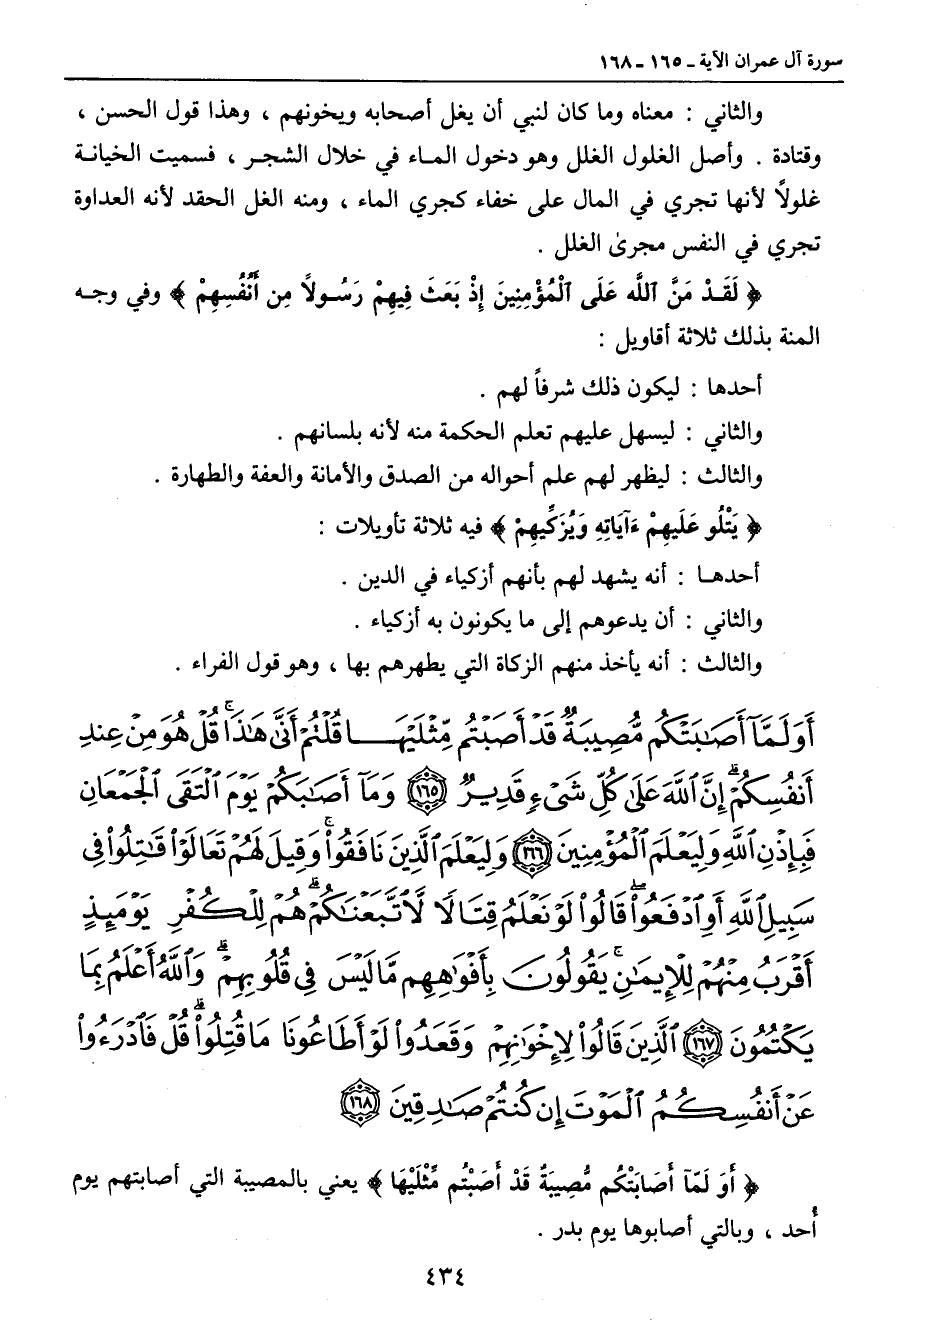 سورة آل عمران الآية ـ ١٦٥ ـ ١٦٨
والثاني : معناه وما كان لنبي أن يغل أصحابه ويخونهم ، وهذا قول الحسن ،
وقتادة . وأصل الغلول الغلل وهو دخول الماء في خلال الشجر ، فسميت الخيانة
غلولاً لأنها تجري في المال على خفاء كجري الماء ، ومنه الغل الحقد لأنه العداوة
تجري في النفس مجرى الغلل .
﴿ لَقَدْ مَنَّ ٱللَّه عَلَى ٱلْمُؤْمِنِينَ إِذْ بَعَثَ فِيهِمْ رَسُولاً مِن أَنْفُسِهِمْ ﴾ وفي وجه
المنة بذلك ثلاثة أقاويل :
أحدها : ليكون ذلك شرفاً لهم .
والثاني : ليسهل عليهم تعلم الحكمة منه لأنه بلسانهم .
والثالث : ليظهر لهم علم أحواله من الصدق والأمانة والعفة والطهارة .
﴿ يَتْلُو عَلَيهِمْ ءَآيَاتِهِ وَيُزَكِّيهِمْ ﴾ فيه ثلاثة تأويلات :
أحدها : أنه يشهد لهم بأنهم أزكياء في الدين .
والثاني : أن يدعوهم إلى ما يكونون به أزكياء .
والثالث : أنه يأخذ منهم الزكاة التي يطهرهم بها ، وهو قول الفراء .
أَوَلَمَّآ أَصَـٰبَتْكُم مُّصِيبَةٌ قَدْ أَصَبْتُم مِّثْلَيْهَا قُلْتُمْ أَنَّىٰ هَـٰذَا ۖ قُلْ هُوَ مِنْ عِندِ
أَنفُسِكُمْ ۗ إِنَّ ٱللَّهَ عَلَىٰ كُلِّ شَىْءٍ قَدِيرٌ ١٦٥ وَمَآ أَصَـٰبَكُمْ يَوْمَ ٱلْتَقَى ٱلْجَمْعَانِ
فَبِإِذْنِ ٱللَّهِ وَلِيَعْلَمَ ٱلْمُؤْمِنِينَ ١٦٦ وَلِيَعْلَمَ ٱلَّذِينَ نَافَقُوا۟ ۚ وَقِيلَ لَهُمْ تَعَالَوْا۟ قَـٰتِلُوا۟ فِى
سَبِيلِ ٱللَّهِ أَوِ ٱدْفَعُوا۟ ۖ قَالُوا۟ لَوْ نَعْلَمُ قِتَالًا لَّٱتَّبَعْنَـٰكُمْ ۗ هُمْ لِلْكُفْرِ يَوْمَئِذٍ
أَقْرَبُ مِنْهُمْ لِلْإِيمَـٰنِ ۚ يَقُولُونَ بِأَفْوَٰهِهِم مَّا لَيْسَ فِى قُلُوبِهِمْ ۗ وَٱللَّهُ أَعْلَمُ بِمَا
يَكْتُمُونَ ١٦٧ ٱلَّذِينَ قَالُوا۟ لِإِخْوَٰنِهِمْ وَقَعَدُوا۟ لَوْ أَطَاعُونَا مَا قُتِلُوا۟ ۗ قُلْ فَٱدْرَءُوا۟
عَنْ أَنفُسِكُمُ ٱلْمَوْتَ إِن كُنتُمْ صَـٰدِقِينَ ١٦٨
﴿ أَوَ لَمَّآ أَصَابَتْكُم مُّصِيبَةٌ قَدْ أَصَبْتُم مِّثْلَيْهَا ﴾ يعني بالمصيبة التي أصابتهم يوم
أُحد ، وبالتي أصابوها يوم بدر .
٤٣٤